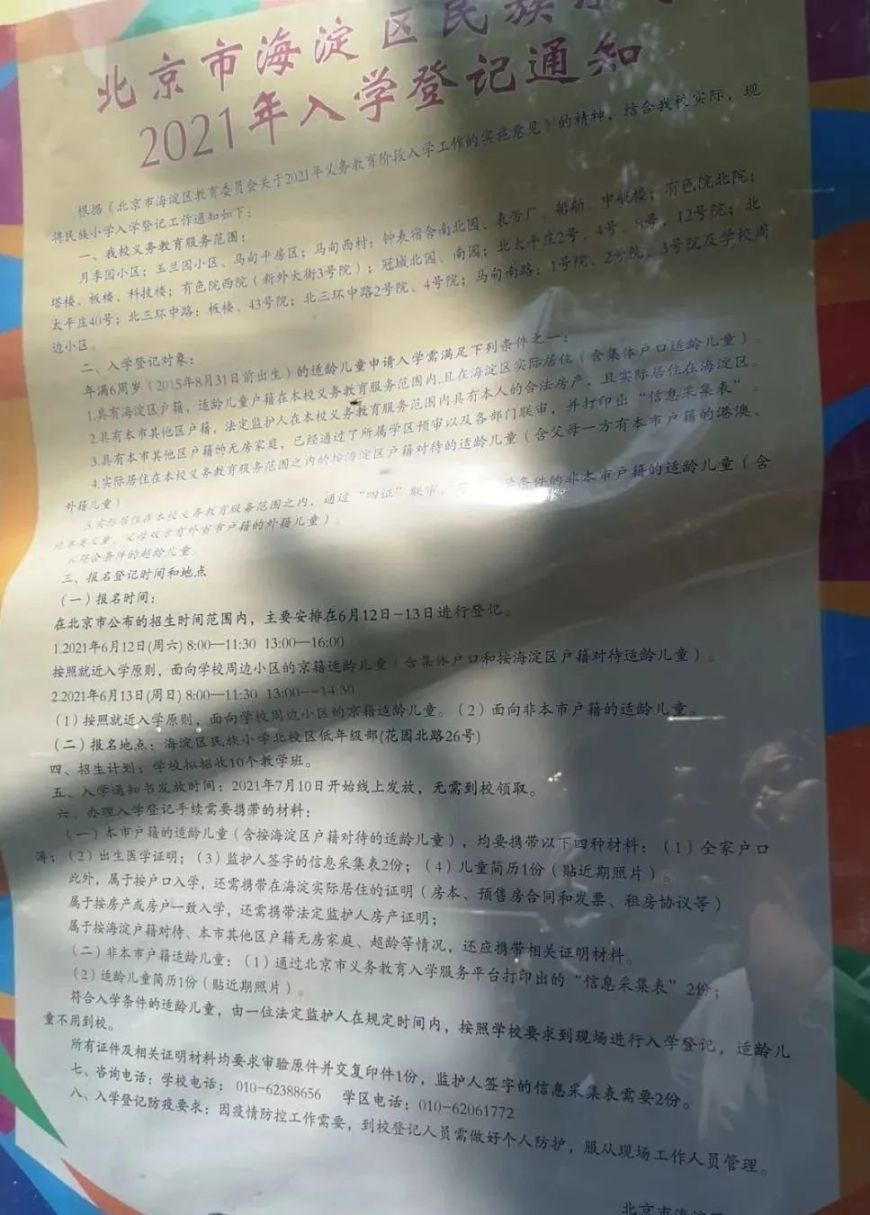 北京市海淀区民族小学
2021年入学登记通知
根据《北京市海淀区教育委员会关于2021年义务教育阶段入学工作的实施意见》的精神，结合我校实际，现
将民族小学入学登记工作通知如下：
一、我校义务教育服务范围：
月季园小区；玉兰园小区、马甸平房区；马甸西村；钟表宿舍南北园、表管厂、船舶、中航楼；有色院北院；
塔楼、板楼、科技楼；有色院西院（新外大街3号院）；冠城北园、南园；北太平庄2号、4号、8号、12号院；北
太平庄40号；北三环中路：板楼、43号院；北三环中路2号院、4号院；马甸南路：1号院、2号院、3号院及学校周
边小区。
二、入学登记对象：
年满6周岁（2015年8月31日前出生）的适龄儿童申请入学需满足下列条件之一：
1.具有海淀区户籍，适龄儿童户籍在本校义务教育服务范围内,且在海淀区实际居住（含集体户口适龄儿童）
2.具有本市其他区户籍，法定监护人在本校义务教育服务范围内具有本人的合法房产，且实际居住在海淀区。
3.具有本市其他区户籍的无房家庭，已经通过了所属学区预审以及各部门联审，并打印出“信息采集表”。
4.实际居住在本校义务教育服务范围之内的按海淀区户籍对待的适龄儿童（含父母一方有本市户籍的港澳、
外籍儿童）
5.实际居住在本校义务教育服务范围之内，通过“四证”联审，条件的非本市户籍的适龄儿童（含
父母双方有外省市户籍的外籍儿童）。
6.符合条件的超龄儿童。
三、报名登记时间和地点
（一）报名时间：
在北京市公布的招生时间范围内，主要安排在6月12日-13日进行登记。
1.2021年6月12日(周六) 8:00—11:30 13:00—16:00
按照就近入学原则，面向学校周边小区的京籍适龄儿童（含集体户口和按海淀区户籍对待适龄儿童）。
2.2021年6月13日(周日) 8:00—11:30 13:00---14:30
（1）按照就近入学原则，面向学校周边小区的京籍适龄儿童。（2）面向非本市户籍的适龄儿童。
（二）报名地点：海淀区民族小学北校区低年级部(花园北路26号)
四、招生计划：学校拟招收10个教学班。
五、入学通知书发放时间：2021年7月10日开始线上发放，无需到校领取。
六、办理入学登记手续需要携带的材料：
（一）本市户籍的适龄儿童（含按海淀区户籍对待的适龄儿童），均要携带以下四种材料：（1）全家户口
簿；（2）出生医学证明；（3）监护人签字的信息采集表2份；（4）儿童简历1份（贴近期照片）。
此外，属于按户口入学，还需携带在海淀实际居住的证明（房本、预售房合同和发票、租房协议等）
属于按房产或房户一致入学，还需携带法定监护人房产证明；
属于按海淀户籍对待、本市其他区户籍无房家庭、超龄等情况，还应携带相关证明材料。
（二）非本市户籍适龄儿童：（1）通过北京市义务教育入学服务平台打印出的“信息采集表”2份；
（2）适龄儿童简历1份（贴近期照片）。
符合入学条件的适龄儿童，由一位法定监护人在规定时间内，按照学校要求到现场进行入学登记，适龄儿
童不用到校。
所有证件及相关证明材料均要求审验原件并交复印件1份，监护人签字的信息采集表需要2份。
七、咨询电话：学校电话：010-62388656 学区电话：010-62061772
八、入学登记防疫要求：因疫情防控工作需要，到校登记人员需做好个人防护，服从现场工作人员管理。
北京市海淀